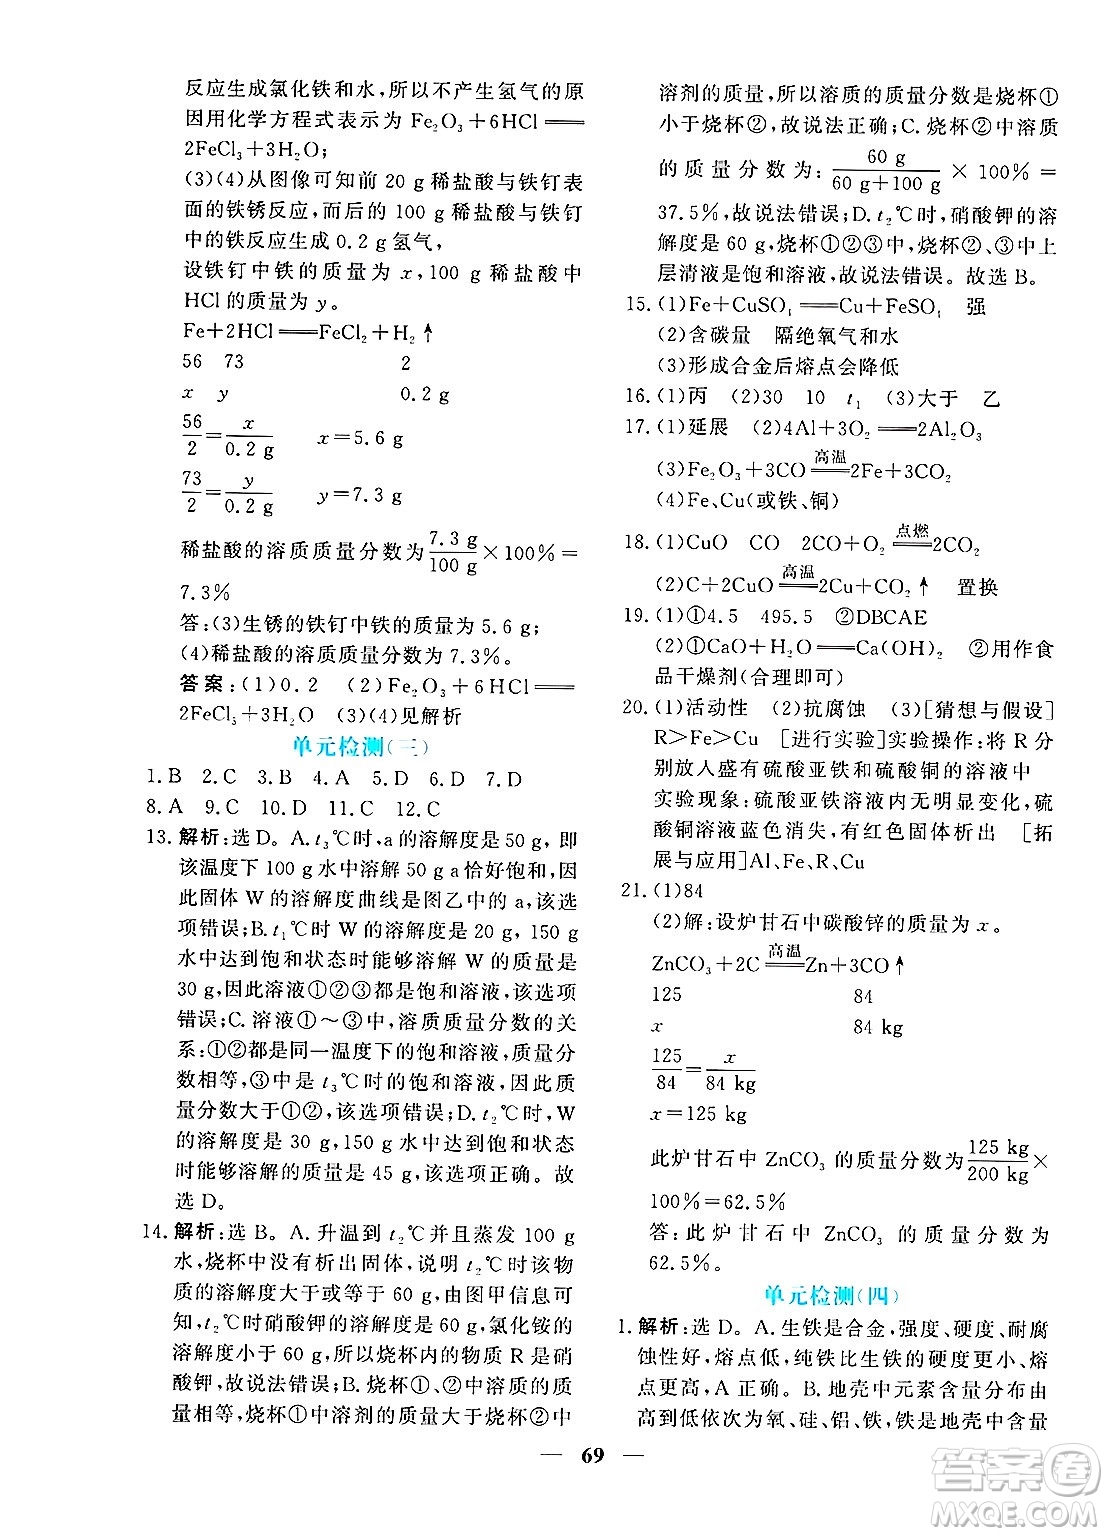 反应生成氯化铁和水,所以不产生氢气的原
因用化学方程式表示为 Fe₂O₃+6HCl══
2FeCl₃+3H₂O;
(3)(4)从图像可知前 20 g 稀盐酸与铁钉表
面的铁锈反应,而后的 100 g 稀盐酸与铁钉
中的铁反应生成 0.2 g 氢气,
设铁钉中铁的质量为 x,100 g 稀盐酸中
HCl 的质量为 y。
Fe+2HCl══FeCl₂+H₂↑
56 73 2
x y 0.2 g
56/2=x/0.2 g x=5.6 g
73/2=y/0.2 g y=7.3 g
稀盐酸的溶质质量分数为7.3 g/100 g×100%=
7.3%
答:(3)生锈的铁钉中铁的质量为 5.6 g;
(4)稀盐酸的溶质质量分数为 7.3%。
答案:(1)0.2 (2)Fe₂O₃+6HCl══
2FeCl₃+3H₂O (3)(4)见解析
单元检测(三)
1.B 2.C 3.B 4.A 5.D 6.C 7.D
8.A 9.C 10.D 11.C 12.C
13.解析:选 D。A.t₃℃时,a的溶解度是 50 g,即
该温度下 100 g 水中溶解 50 g a恰好饱和,因
此固体 W 的溶解度曲线是图乙中的 a,该选
项错误;B.t₁℃时 W 的溶解度是 20 g,150 g
水中达到饱和状态时能够溶解 W 的质量是
30 g,因此溶液①②③是饱和溶液,该选项
错误;C.溶液①~③中,溶质质量分数的关
系:①②都是同一温度下的饱和溶液,质量分
数相等,③中是 t₃℃时的饱和溶液,因此质
量分数大于①②,该选项错误;D.t₂℃时,W
的溶解度是 30 g,150 g 水中达到饱和状态
时能够溶解的质量是 45 g,该选项正确。故
选 D。
14.解析:选 B。A.升温到 t₂℃并且蒸发 100 g
水,烧杯中没有析出固体,说明 t₂℃时该物
质的溶解度大于或等于 60 g,由图甲信息可
知,t₂℃时硝酸钾的溶解度是 60 g,氯化铵的
溶解度小于 60 g,所以烧杯内的物质 R 是硝
酸钾,故说法错误;B.烧杯中溶质的质量相
等,烧杯①中溶剂的质量大于烧杯②中
溶剂的质量,所以溶质的质量分数是烧杯①
小于烧杯②,故说法正确;C.烧杯②中溶质
的质量分数为:60 g/60 g+100 g×100%=
37.5%,故说法错误;D.t₂℃时,硝酸钾的溶
解度是 60 g,烧杯①②③中,烧杯②、③中上
层清液是饱和溶液,故说法错误。故选 B。
15.(1)Fe+CuSO₄══Cu+FeSO₄ 强
(2)含碳量 隔绝氧气和水
(3)形成合金后熔点会降低
16.(1)丙 (2)30 10 t₁ (3)大于 乙
17.(1)延展 (2)4Al+3O₂══2Al₂O₃
(3)Fe₂O₃+3CO═高温═2Fe+3CO₂
(4)Fe、Cu(或铁、铜)
18.(1)CuO CO 2CO+O₂═点燃═2CO₂
(2)C+2CuO═高温═2Cu+CO₂↑ 置换
19.(1)①4.5 495.5 ②DBCAE
(2)①CaO+H₂O══Ca(OH)₂ ②用作食
品干燥剂(合理即可)
20.(1)活动性 (2)抗腐蚀 (3)[猜想与假设]
R>Fe>Cu [进行实验]实验操作:将 R 分
别放人盛有硫酸亚铁和硫酸铜的溶液中
实验现象:硫酸亚铁溶液内无明显变化,硫
酸铜溶液蓝色消失,有红色固体析出 [拓
展与应用]Al、Fe、R、Cu
21.(1)84
(2)解:设炉甘石中碳酸锌的质量为 x。
ZnCO₃+2C═高温═Zn+3CO↑
125 84
x 84 kg
125/84=x/84 kg
x=125 kg
此炉甘石中 ZnCO₃ 的质量分数为125 kg/200 kg×
100%=62.5%
答:此炉甘石中 ZnCO₃ 的质量分数为
62.5%。
单元检测(四)
1.解析:选 D。A.生铁是合金,强度、硬度、耐腐
蚀性好,熔点低,纯铁比生铁的硬度更小、熔
点更高,A 正确。B.地壳中元素含量分布由
高到低依次为氧、硅、铝、铁,铁是地壳中含量
— 69 —
答案圈
MXQE.COM